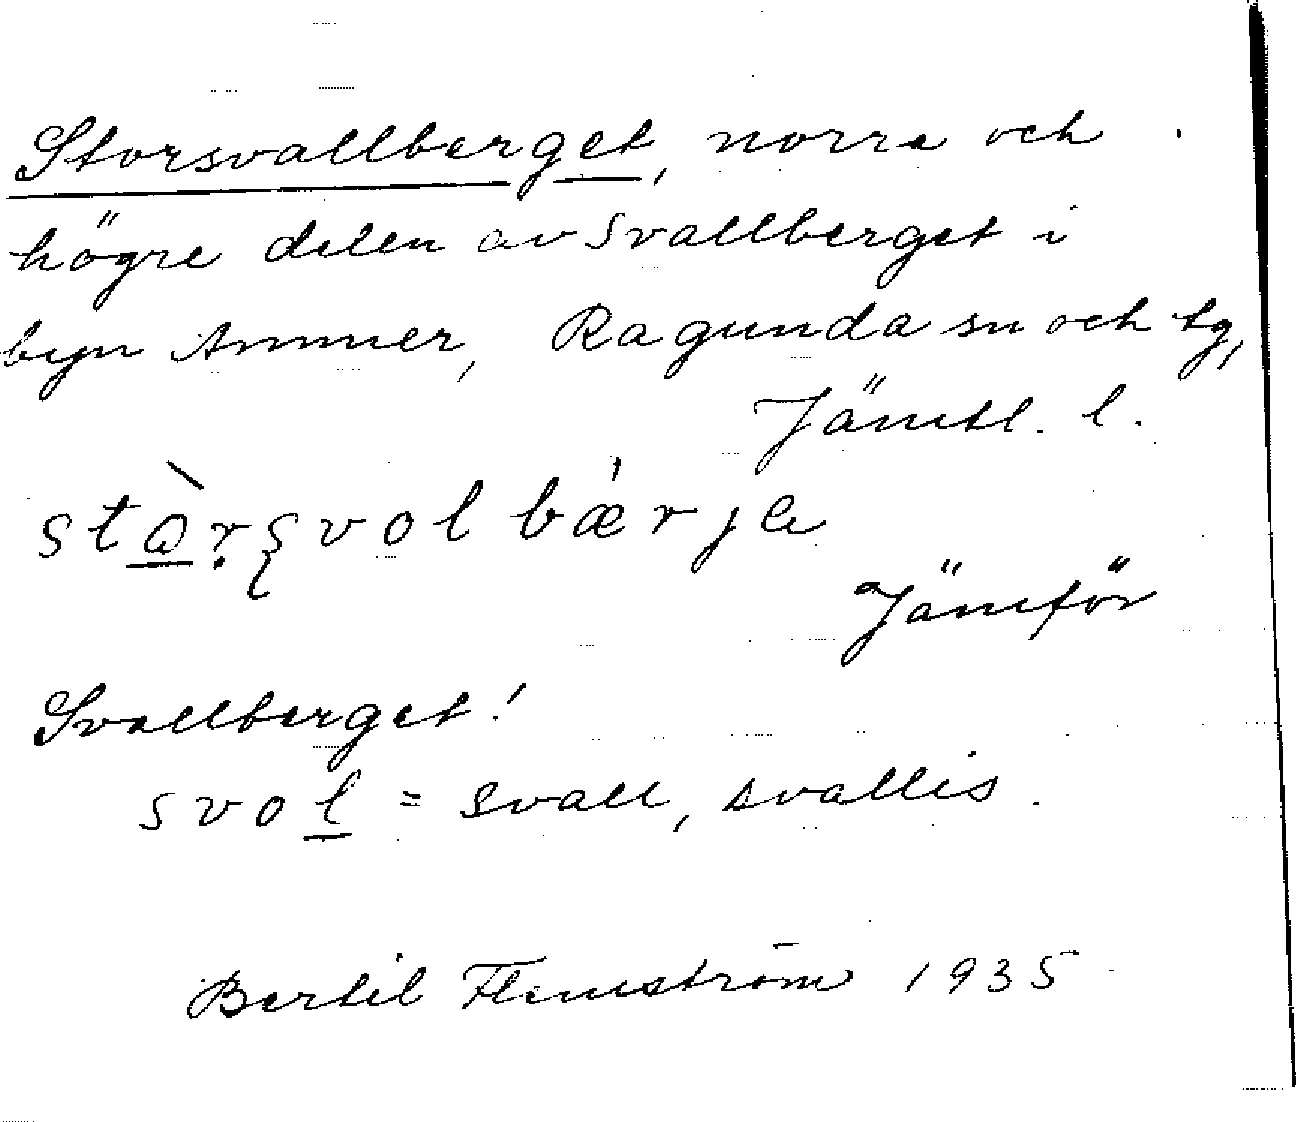 Storsvallberget, norra och
högre delen av Svallberget i
byn Ammer, Ragunda sn och tg,
Jämtl. l.
stὰrʂvol bǽrja
Jämför
Svallberget!
svol = svall, svallis.
Bertil Flemström 1935